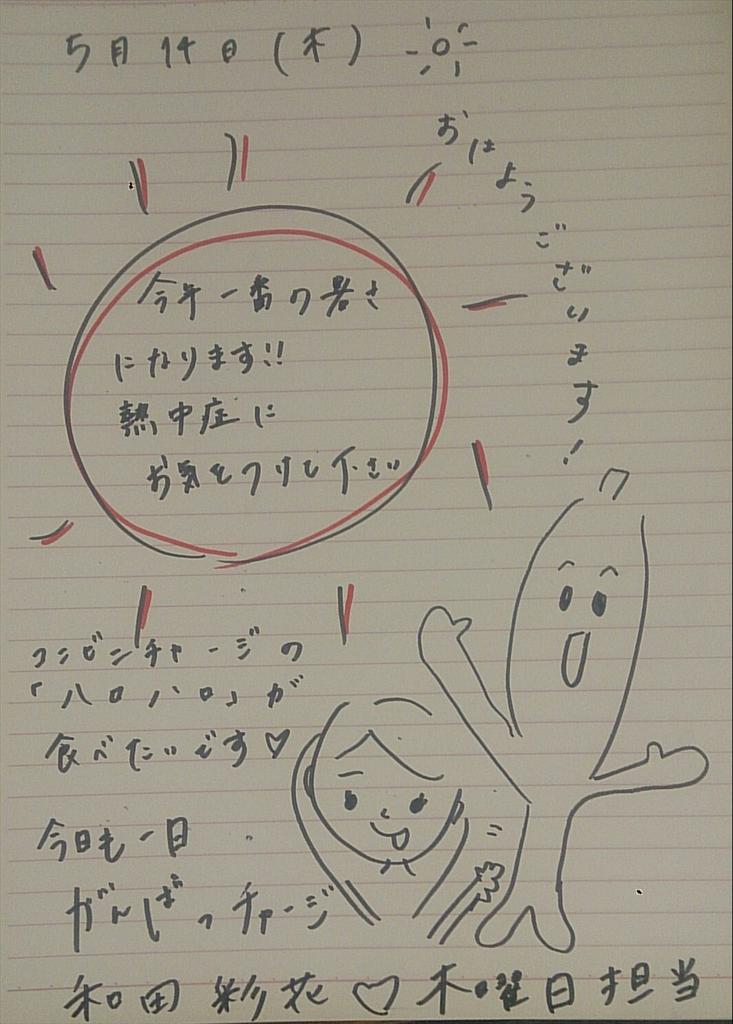 5月14日(木)
おはようございます!
今年一番の暑さ
になります!!
熱中症に
お気をつけて下さい
コンビンチャージの
「ハロハロ」が
食べたいです♡
今日も一日
がんばっチャージ
和田彩花♡木曜日担当